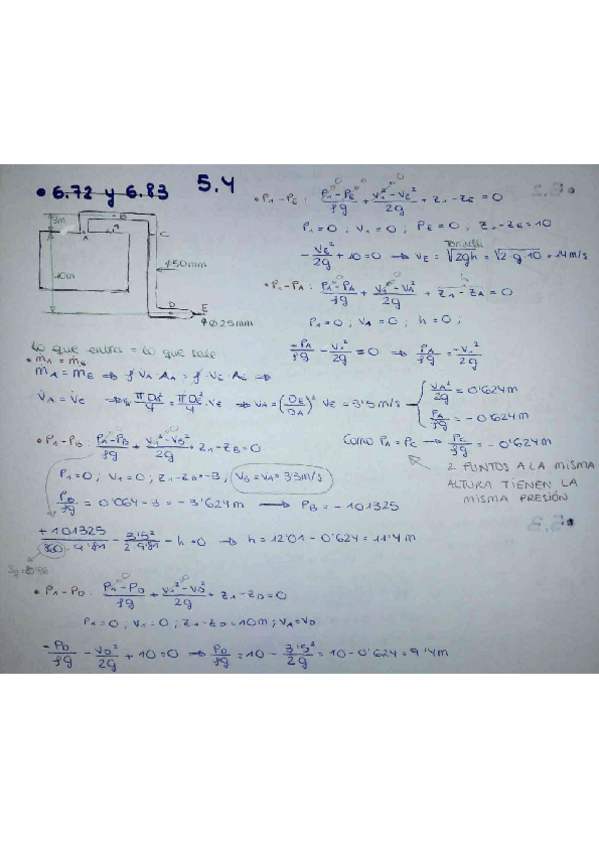 • 6.72 y 6.83
5.4
3m
B
A
C
10m
φ50mm
D
E
φ25mm
• P₁-P_E : (P₁-P_E)/ρg + (V₁²-V_E²)/2g + z₁-z_E = 0
P₁=0 ; V₁=0 ; P_E=0 ; z₁-z_E=10
-V_E²/2g + 10 = 0 → V_E = √2gh = √2·g·10 = 14 m/s
Torricelli
• P₁-P_A : (P₁-P_A)/ρg + (V₁²-V_A²)/2g + z₁-z_A = 0
P₁=0 ; V₁=0 ; h=0 ;
-P_A/ρg - V_A²/2g = 0 → P_A/ρg = -V_A²/2g
Lo que entra = lo que sale:
• ṁ_A = ṁ_E
ṁ_A = ṁ_E ⇒ ρ·V_A·A_A = ρ·V_E·A_E ⇒
V̇_A = V̇_E ⇒ V_A πD_A²/4 = πD_E²/4 · V_E ⇒ V_A = (D_E/D_A)² V_E = 3'5 m/s
V_A²/2g = 0'624m
P_A/ρg = -0'624m
• P₁-P_B : (P₁-P_B)/ρg + (V₁²-V_B²)/2g + z₁-z_B = 0
Como P_A = P_C → P_C/ρg = -0'624m
P₁=0 ; V₁=0 ; z₁-z_B=-3 ; V_B=V_A=3'5m/s
2 PUNTOS A LA MISMA
ALTURA TIENEN LA
MISMA PRESIÓN
P_B/ρg = 0'064 - 3 = -3'624m → P_B = -101325
+101325/860·9'81 - 3'5²/2·9'81 - h = 0 → h = 12'01 - 0'624 = 11'4m
• P₁-P_D : (P₁-P_D)/ρg + (V₁²-V_D²)/2g + z₁-z_D = 0
P₁=0 ; V₁=0 ; z₁-z_D=10m ; V_A=V_D
-P_D/ρg - V_D²/2g + 10 = 0 → P_D/ρg = 10 - 3'5²/2g = 10 - 0'624 = 9'4m